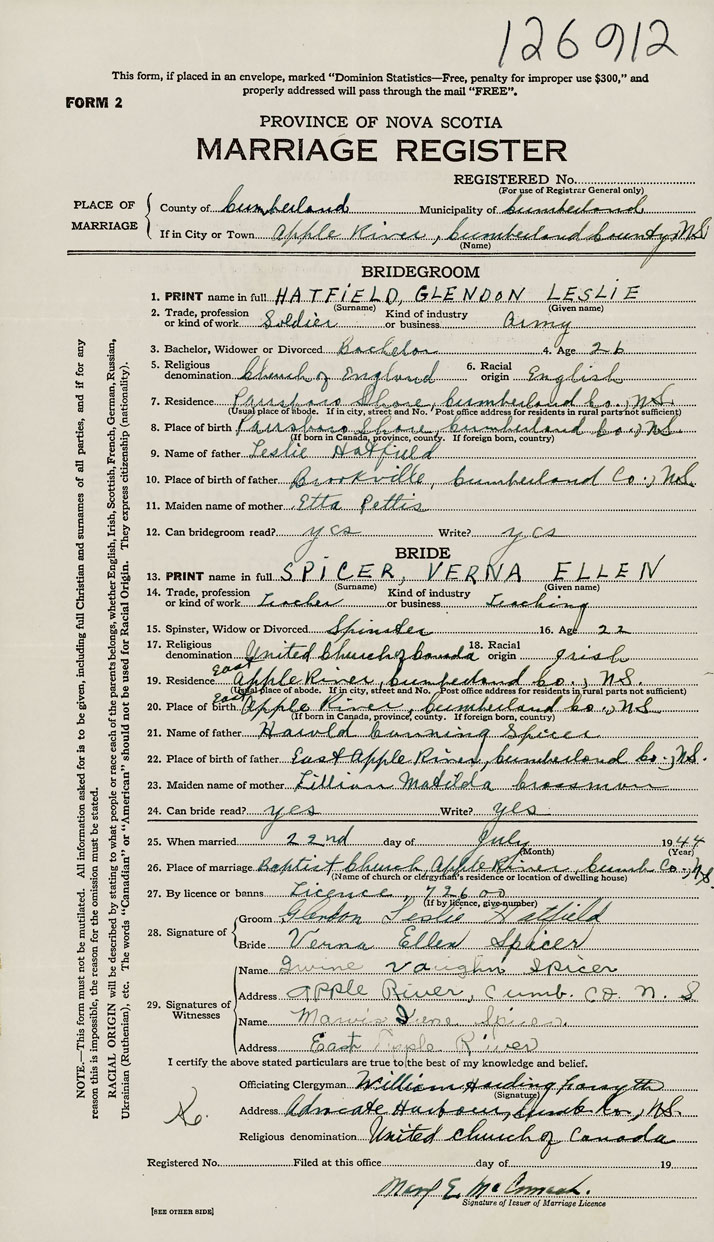 126912
This form, if placed in an envelope, marked "Dominion Statistics—Free, penalty for improper use $300," and
properly addressed will pass through the mail "FREE".
FORM 2
PROVINCE OF NOVA SCOTIA
MARRIAGE REGISTER
REGISTERED No.
(For use of Registrar General only)
PLACE OF MARRIAGE
County of Cumberland Municipality of Cumberland
If in City or Town Apple River, Cumberland County, N.S.
(Name)
BRIDEGROOM
1. PRINT name in full HATFIELD, GLENDON LESLIE
(Surname) (Given name)
2. Trade, profession or kind of work Soldier Kind of industry or business Army
3. Bachelor, Widower or Divorced Bachelor 4. Age 26
5. Religious denomination Church of England 6. Racial origin English
7. Residence Parrsboro Shore, Cumberland Co., N.S.
(Usual place of abode. If in city, street and No. Post office address for residents in rural parts not sufficient)
8. Place of birth Parrsboro Shore, Cumberland Co., N.S.
(If born in Canada, province, county. If foreign born, country)
9. Name of father Leslie Hatfield
10. Place of birth of father Brookville, Cumberland Co., N.S.
11. Maiden name of mother Etta Pettis
12. Can bridegroom read? yes Write? yes
BRIDE
13. PRINT name in full SPICER, VERNA ELLEN
(Surname) (Given name)
14. Trade, profession or kind of work Teacher Kind of industry or business Teaching
15. Spinster, Widow or Divorced Spinster 16. Age 22
17. Religious denomination United Church of Canada 18. Racial origin Irish
19. Residence East Apple River, Cumberland Co., N.S.
(Usual place of abode. If in city, street and No. Post office address for residents in rural parts not sufficient)
20. Place of birth East Apple River, Cumberland Co., N.S.
(If born in Canada, province, county. If foreign born, country)
21. Name of father Harold Canning Spicer
22. Place of birth of father East Apple River, Cumberland Co., N.S.
23. Maiden name of mother Lillian Matilda Crossman
24. Can bride read? yes Write? yes
25. When married 22nd day of July 1944
(Month) (Year)
26. Place of marriage Baptist Church, Apple River, Cumb. Co., N.S.
(Name of church or clergyman's residence or location of dwelling house)
27. By licence or banns Licence, 72600
(If by licence, give number)
28. Signature of
Groom Glendon Leslie Hatfield
Bride Verna Ellen Spicer
29. Signatures of Witnesses
Name Irvine Vaughn Spicer
Address Apple River, Cumb. Co. N. S
Name Mavis Irene Spicer
Address East Apple River
I certify the above stated particulars are true to the best of my knowledge and belief.
Officiating Clergyman William Harding Forsyth
(Signature)
Address Advocate Harbour, Cumb. Co., N.S.
Religious denomination United Church of Canada
Registered No. Filed at this office day of 19
Mary E.
Signature of Issuer of Marriage Licence
[SEE OTHER SIDE]
NOTE.—This form must not be mutilated. All information asked for is to be given, including full Christian and surnames of all parties, and if for any
reason this is impossible, the reason for the omission must be stated.
RACIAL ORIGIN will be described by stating to what people or race each of the parents belongs, whether English, Irish, Scottish, French, German, Russian,
Ukrainian (Ruthenian), etc. The words "Canadian" or "American" should not be used for Racial Origin. They express citizenship (nationality).